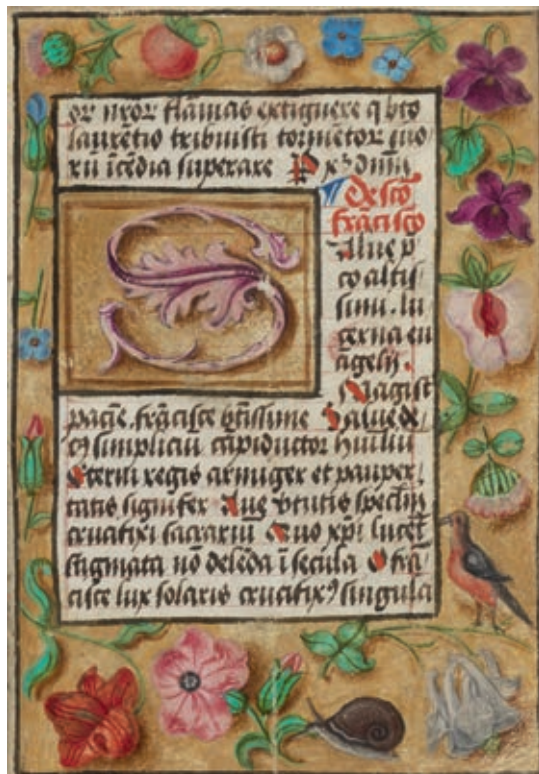 or nror flāmas extiguere q bto
laurētio tribuisti tormētor suo
rū īcēdia superare P xp̄ dnm̄
De scō
frācisco
alue p
co altis
simi . lu
cerna eu
āgelij .
Magist
pacie . frācisce btissime Salue
simpliciū ductor humiliū
Eterni regis armiger et pauper
tatis signifer Aue vtutis speclm
crucifixi sacrariū In quo xpi lucēt
stigmata nō delēda ī secula O frā
cisce lux solaris crucifixꝰ singula